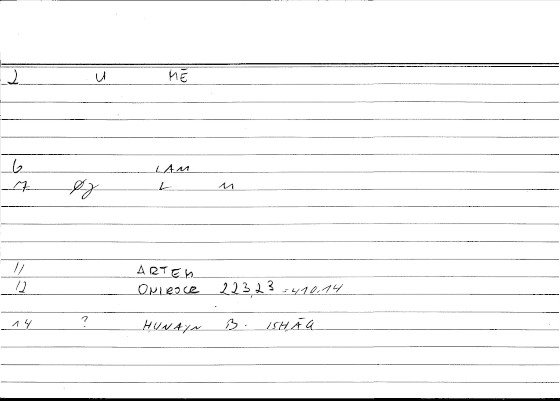 2 U MĒ
6 LAM
17 Øj L M
11 ARTEM
12 ONIROCR 223,23 = 410.14
14 ? HUNAYN B. ISHĀQ